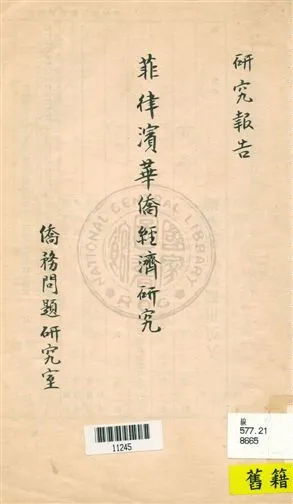 研究報告
菲律濱華僑經濟研究
僑務問題研究室
NATIONAL CENTRAL LIBRARY
11245
577.21
8665
舊籍